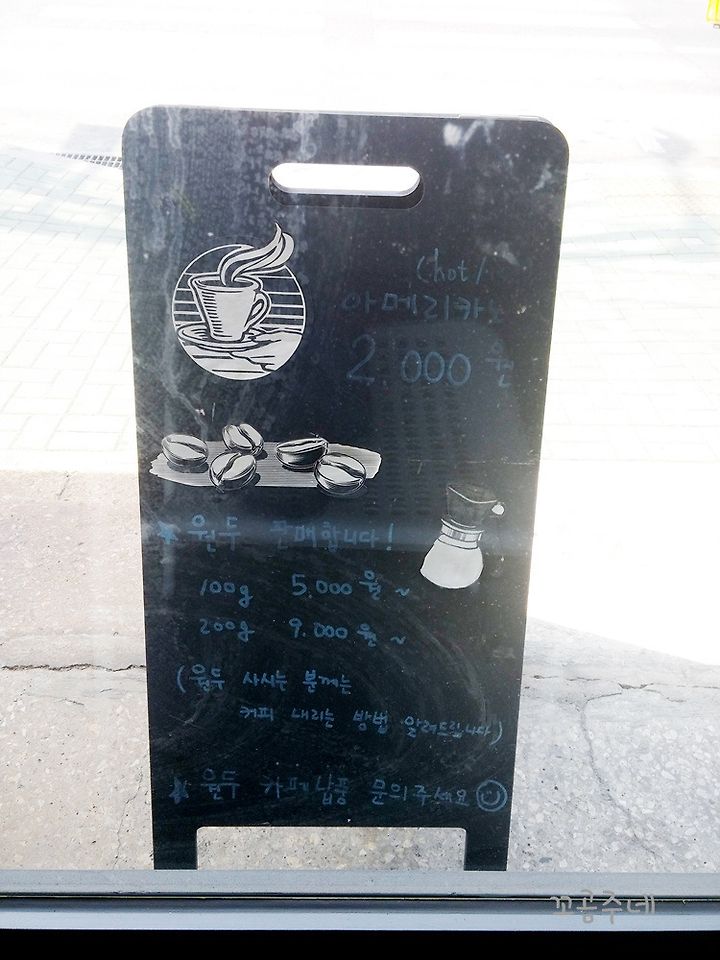 (hot)
아메리카노
2.000원
★ 원두 판매합니다!
100g 5.000원~
200g 9.000원~
(원두 사시는 분께는
커피 내리는 방법 알려드립니다)
★ 원두 카페납품 문의주세요☺
꼬곰주네